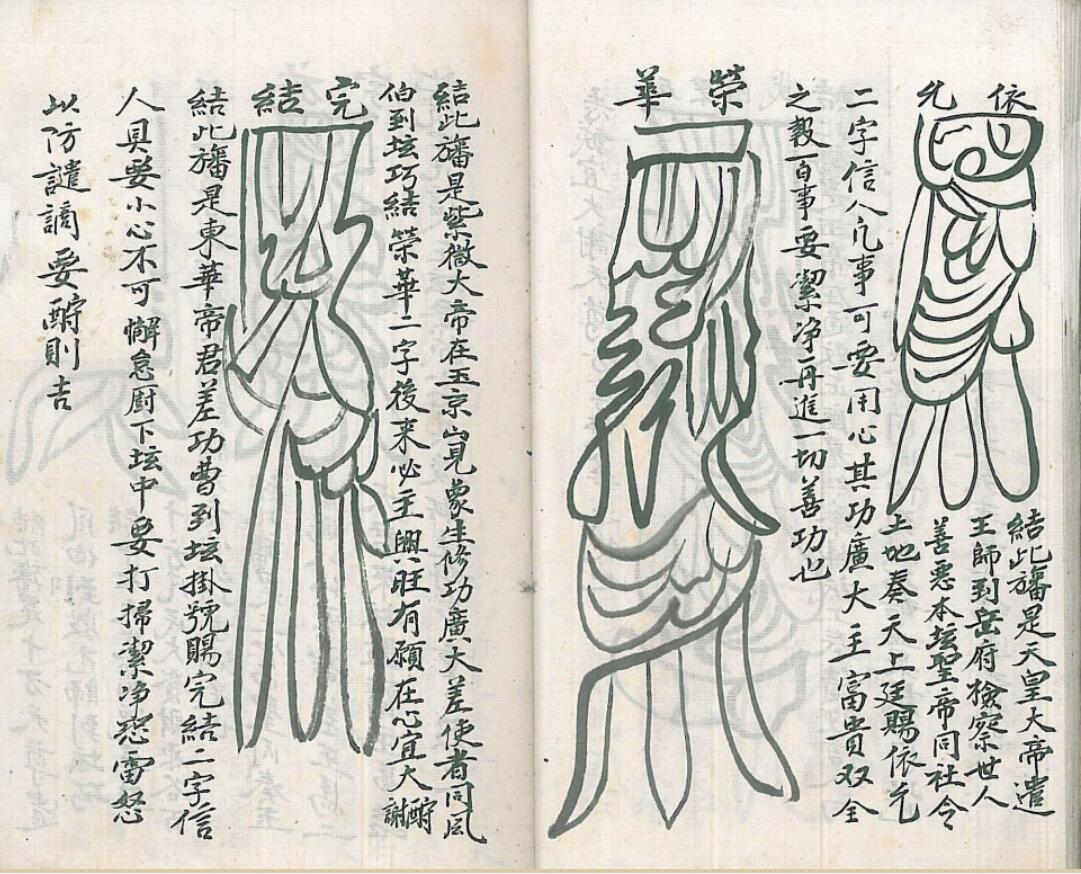 依允
結此旛是天皇大帝遣
王師到岳府檢察世人
善惡本坛聖帝同社令
土地奏天上廷賜依允
二字信人凢事可要用心其功廣大主富貴双全
之穀一百事要潔净再進一切善功也
榮華
結此旛是紫微大帝在玉京山見象生修功廣大差使者同風
伯到坛巧結榮華二字後来必主興旺有願在心宜大酧謝
完結
結此旛是東華帝君差功曹到坛掛號賜完結二字信
人具要小心不可懈怠厨下坛中要打掃潔净恐雷怒
以防譴謫要酧則吉